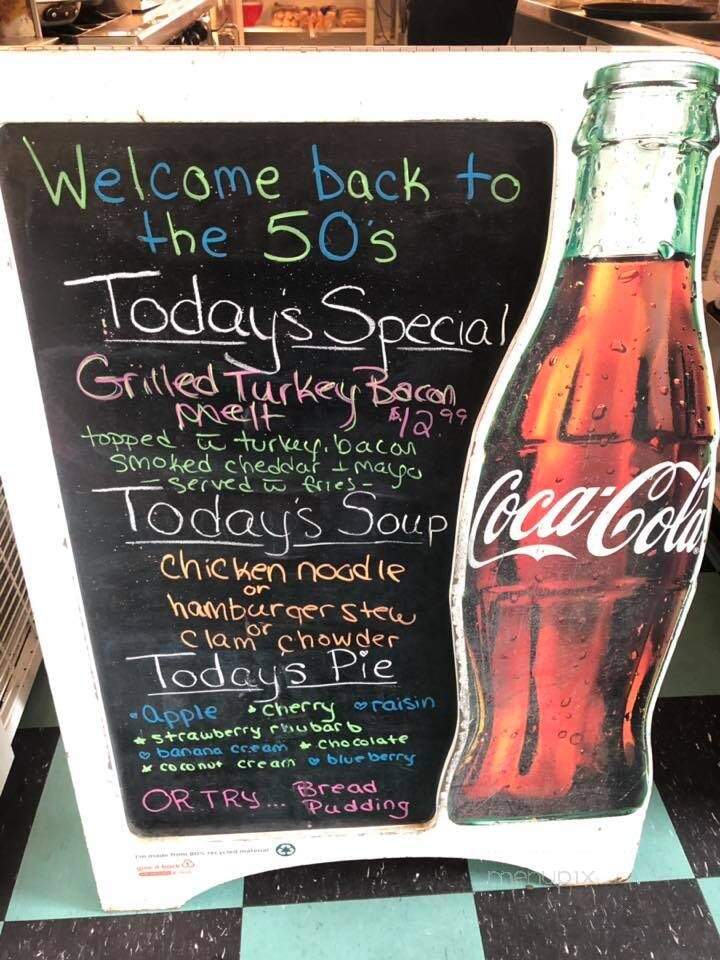 Welcome back to
the 50's
Today's Special
Grilled Turkey Bacon
melt $12.99
topped w turkey, bacon
smoked cheddar + mayo
- served w fries -
Today's Soup
chicken noodle
or
hamburger stew
or
clam chowder
Today's Pie
apple cherry raisin
strawberry rhubarb
banana cream chocolate
coconut cream blueberry
OR TRY... Bread
Pudding
Coca-Cola
I'm made from 80% recycled material
give it back
menupix